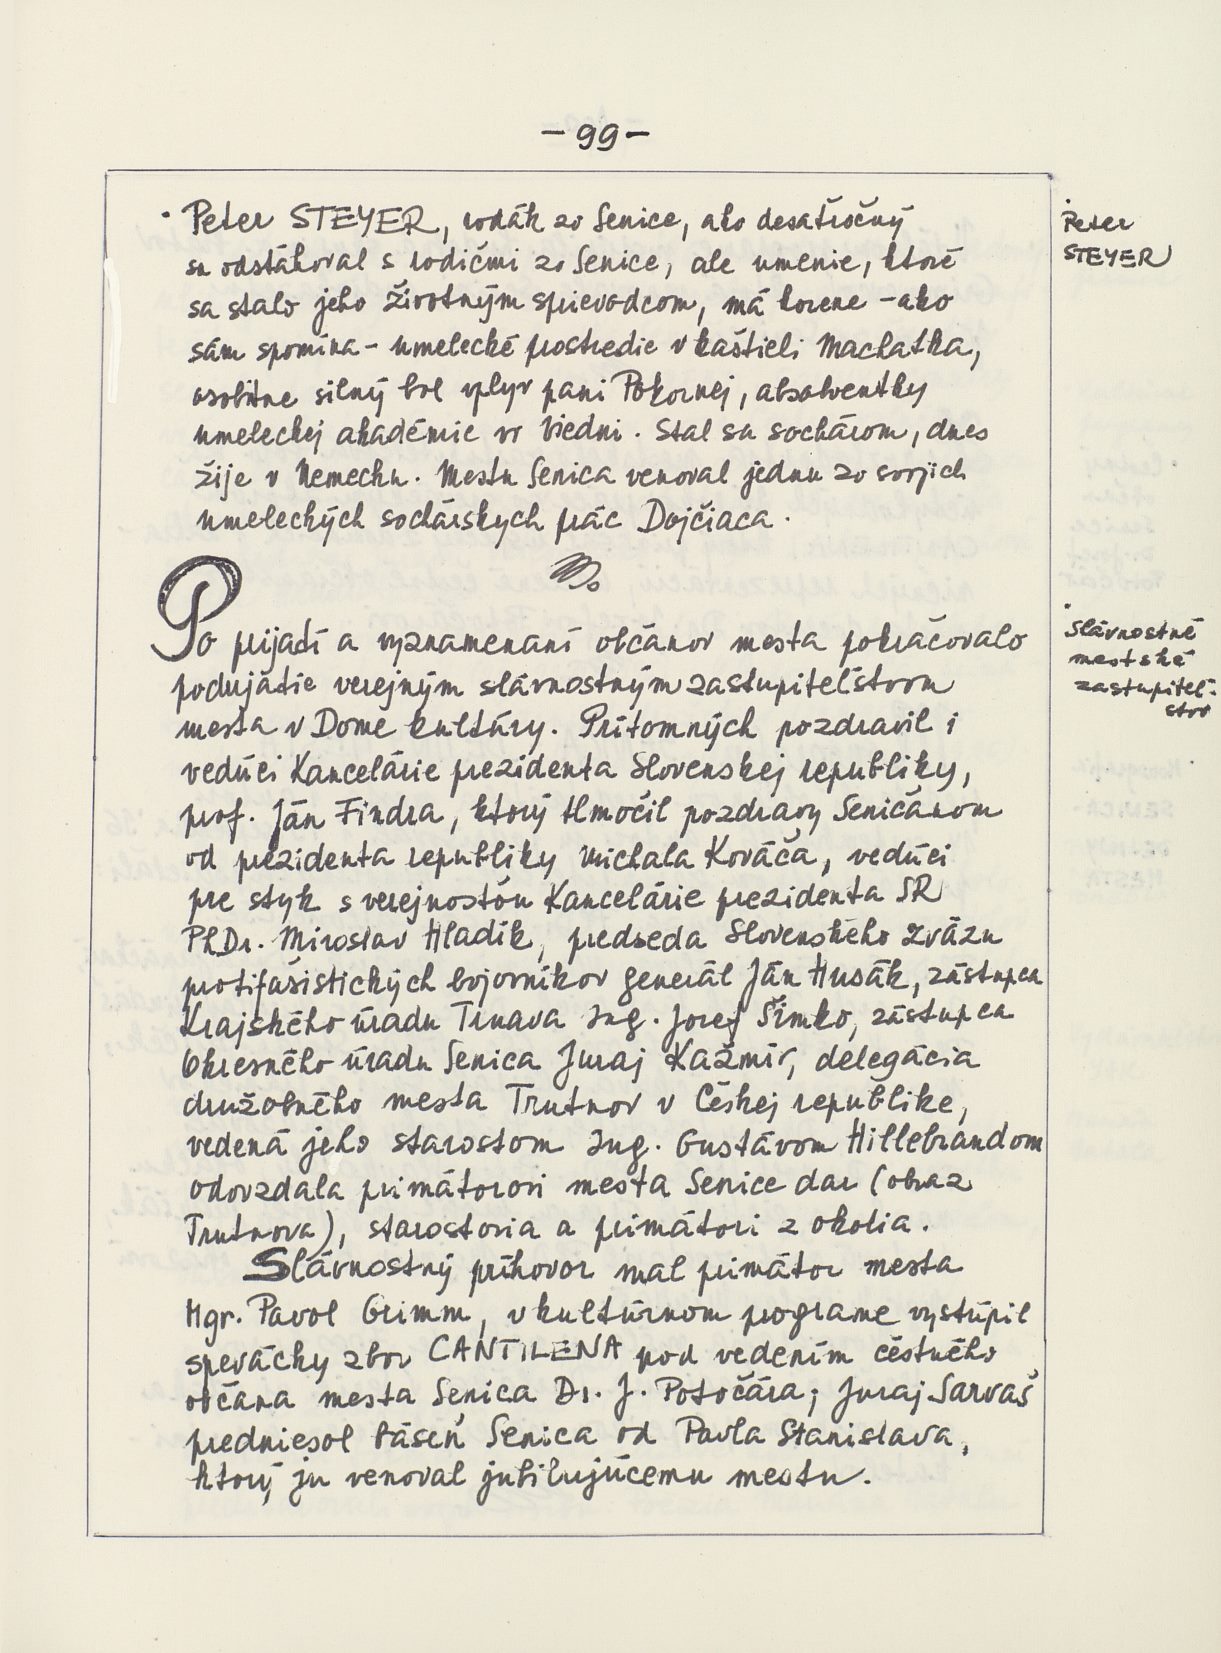 - 99 -
· Peter STEYER, rodák zo Senice, ako desaťročný
sa odsťahoval s rodičmi zo Senice, ale umenie, ktoré
sa stalo jeho životným sprievodcom, má korene - ako
sám spomína - umelecké prostredie v kaštieli Machatka,
osobitne silný bol vplyv pani Pokornej, absolventky
umeleckej akadémie vo Viedni. Stal sa sochárom, dnes
žije v Nemecku. Mestu Senica venoval jednu zo svojich
umeleckých sochárskych prác Dojčiaca.
Po prijatí a vyznamenaní občanov mesta pokračovalo
podujatie verejným slávnostným zastupiteľstvom
mesta v Dome kultúry. Prítomných pozdravil i
vedúci Kancelárie prezidenta Slovenskej republiky,
prof. Ján Findra, ktorý tlmočil pozdravy Seničanom
od prezidenta republiky Michala Kováča, vedúci
pre styk s verejnosťou Kancelárie prezidenta SR
PhDr. Miroslav Hladík, predseda Slovenského zväzu
protifašistických bojovníkov generál Ján Husák, zástupca
Krajského úradu Trnava Ing. Jozef Šimko, zástupca
Okresného úradu Senica Juraj Kažmír, delegácia
družobného mesta Trutnov v Českej republike,
vedená jeho starostom Ing. Gustávom Hillebrandom
odovzdala primátorovi mesta Senice dar (obraz
Trutnova), starostovia a primátori z okolia.
Slávnostný príhovor mal primátor mesta
Mgr. Pavol Grimm, v kultúrnom programe vystúpil
spevácky zbor CANTILENA pod vedením čestného
občana mesta Senica Dr. J. Potočára; Juraj Sarvaš
predniesol báseň Senica od Pavla Stanislava,
ktorý ju venoval jubilujúcemu mestu.
· Peter
STEYER
· Slávnostné
mestské
zastupiteľ-
stvo